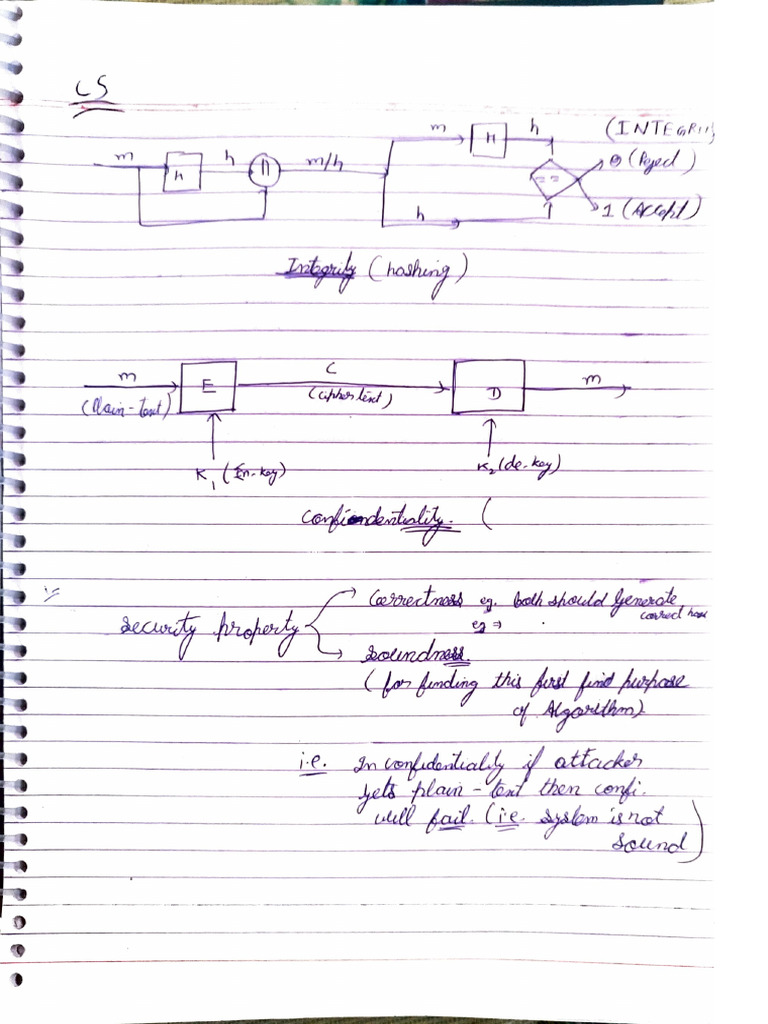 CS
m h h || m/h m H h (INTEGRI
== 0 (Reject)
h 1 (Accept)
Integrity (hashing)
m E C D m
(Plain-text) (ciphertext)
K1 (En-key) K2 (de-key)
Confidentiality. (
security property
Correctness eg. both should generate
correct hash
eg ⇒
soundness
(for finding this first find purpose
of Algorithm)
i.e. In confidentiality if attacker
gets plain-text then confi.
will fail. (i.e. system is not
sound)